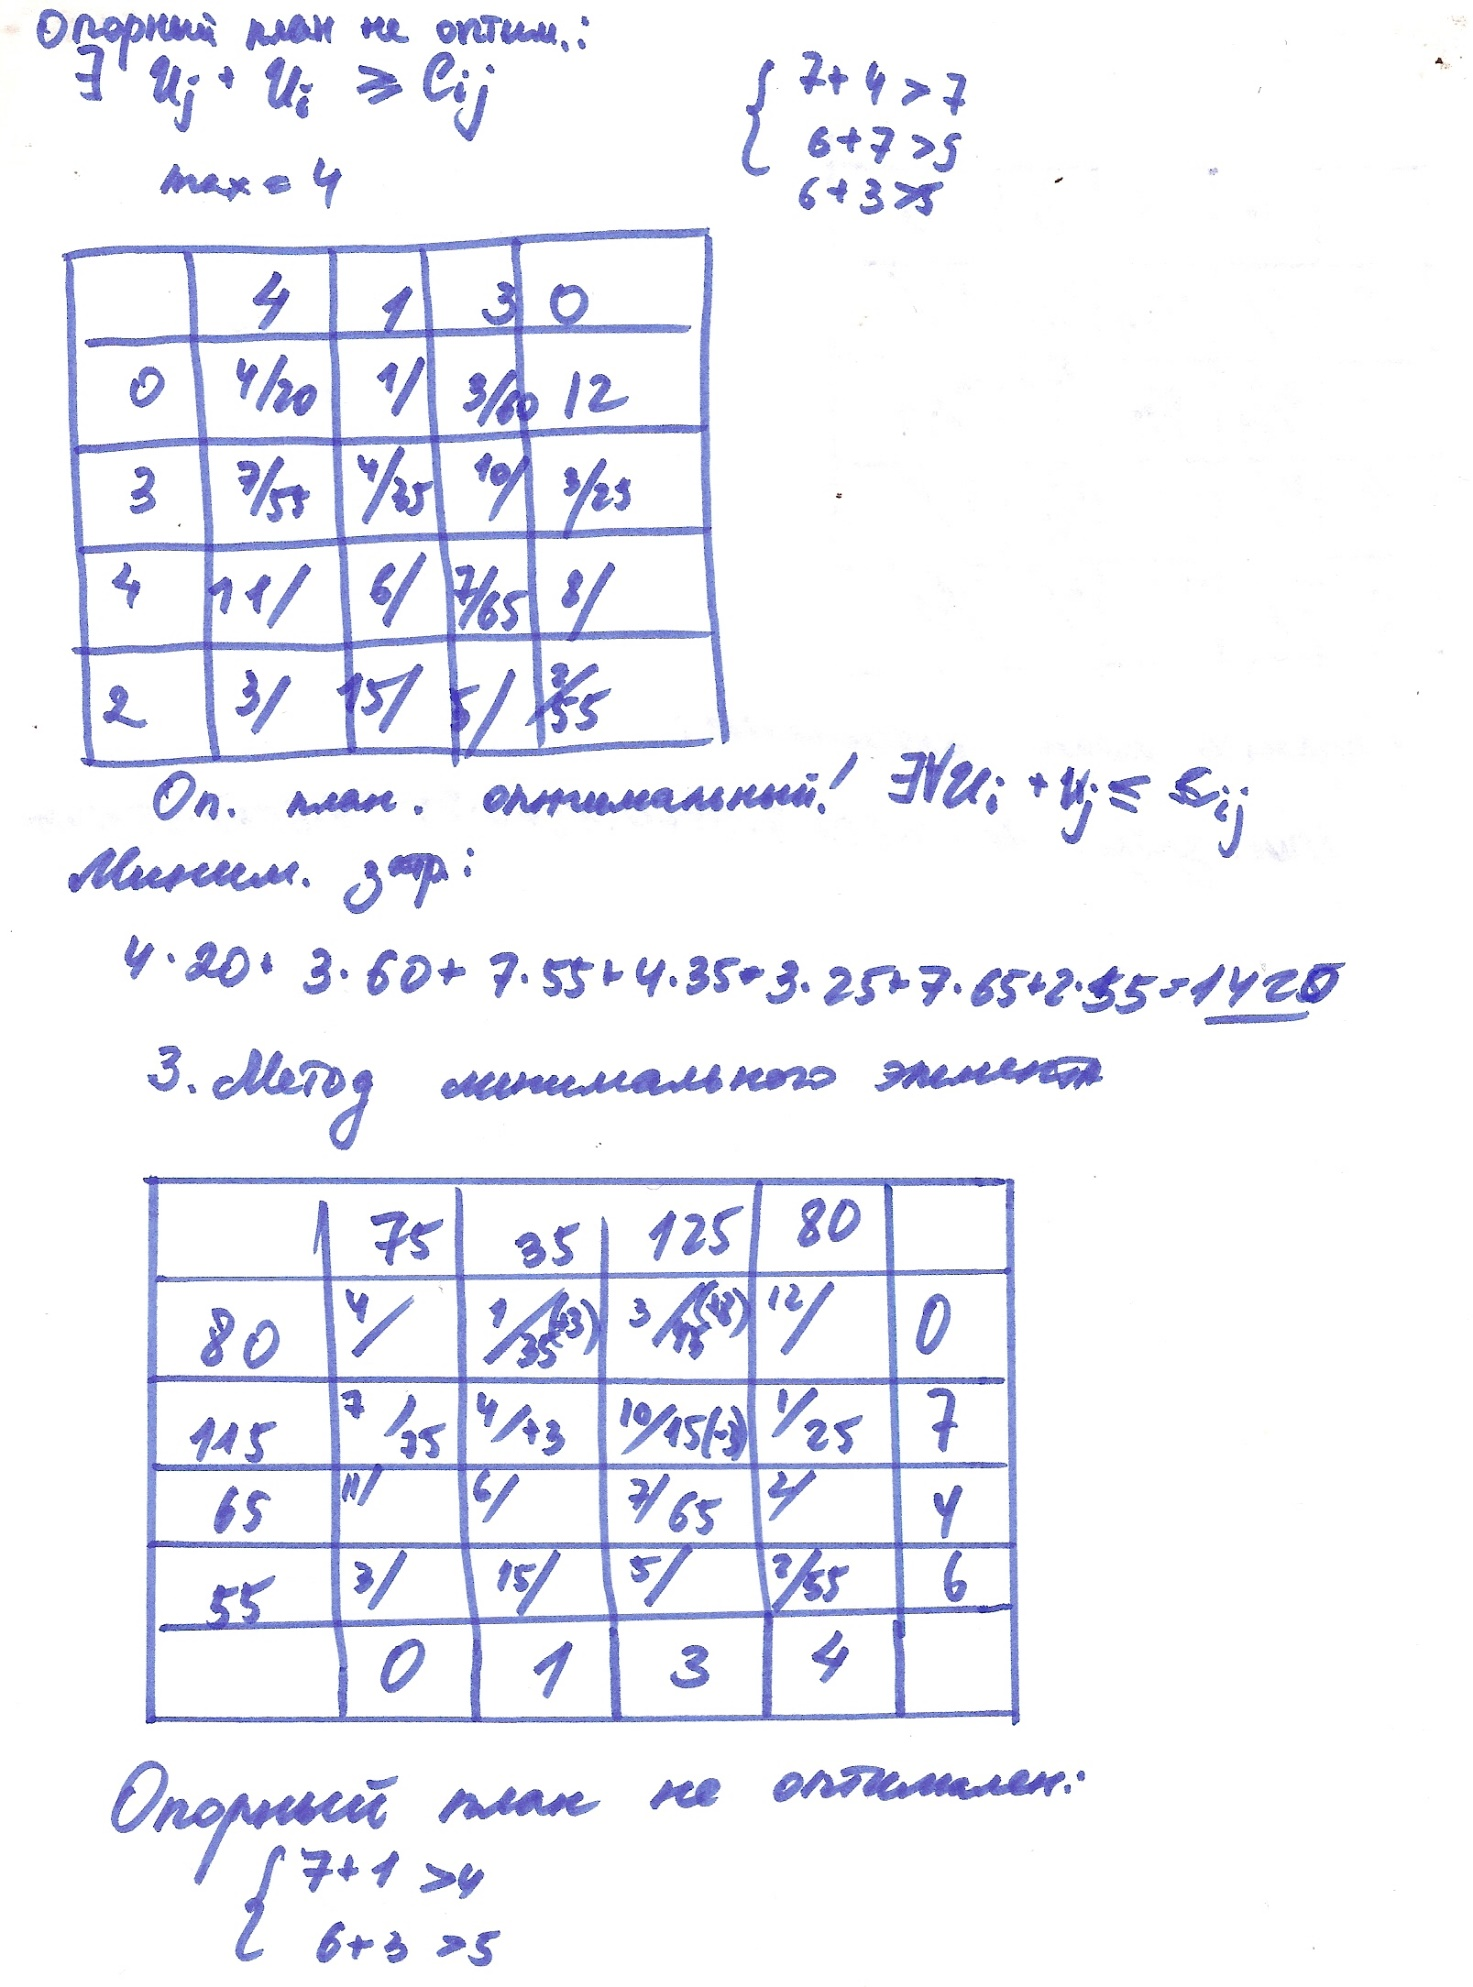 Опорный план не оптим.:
∃ Uj + Ui ≥ Cij
{ 7+4>7
6+7>9
6+3>5
max = 4
4 1 3 0
0 4/20 1/ 3/60 12
3 7/55 4/35 10/ 3/25
4 11/ 6/ 7/65 8/
2 3/ 15/ 5/ 2/55
Оп. план. оптимальный! ∃∀Ui + Uj ≤ Cij
Миним. затр.:
4·20+ 3·60+ 7·55+4·35+3·25+7·65+2·55=1425
3. Метод минимального элемента
75 35 125 80
80 4/ 1/35(+3) 3/45(+3) 12/ 0
115 7/75 4/+3 10/15(-3) 1/25 7
65 11/ 6/ 7/65 2/ 4
55 3/ 15/ 5/ 2/55 6
0 1 3 4
Опорный план не оптимален:
{ 7+1 >4
6+3 >5